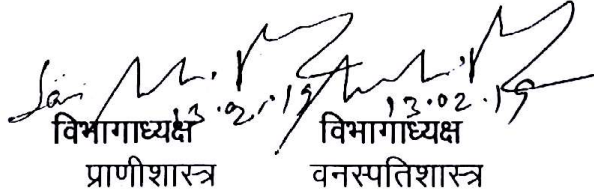 13.02.19 13.02.19
विभागाध्यक्ष विभागाध्यक्ष
प्राणीशास्त्र वनस्पतिशास्त्र